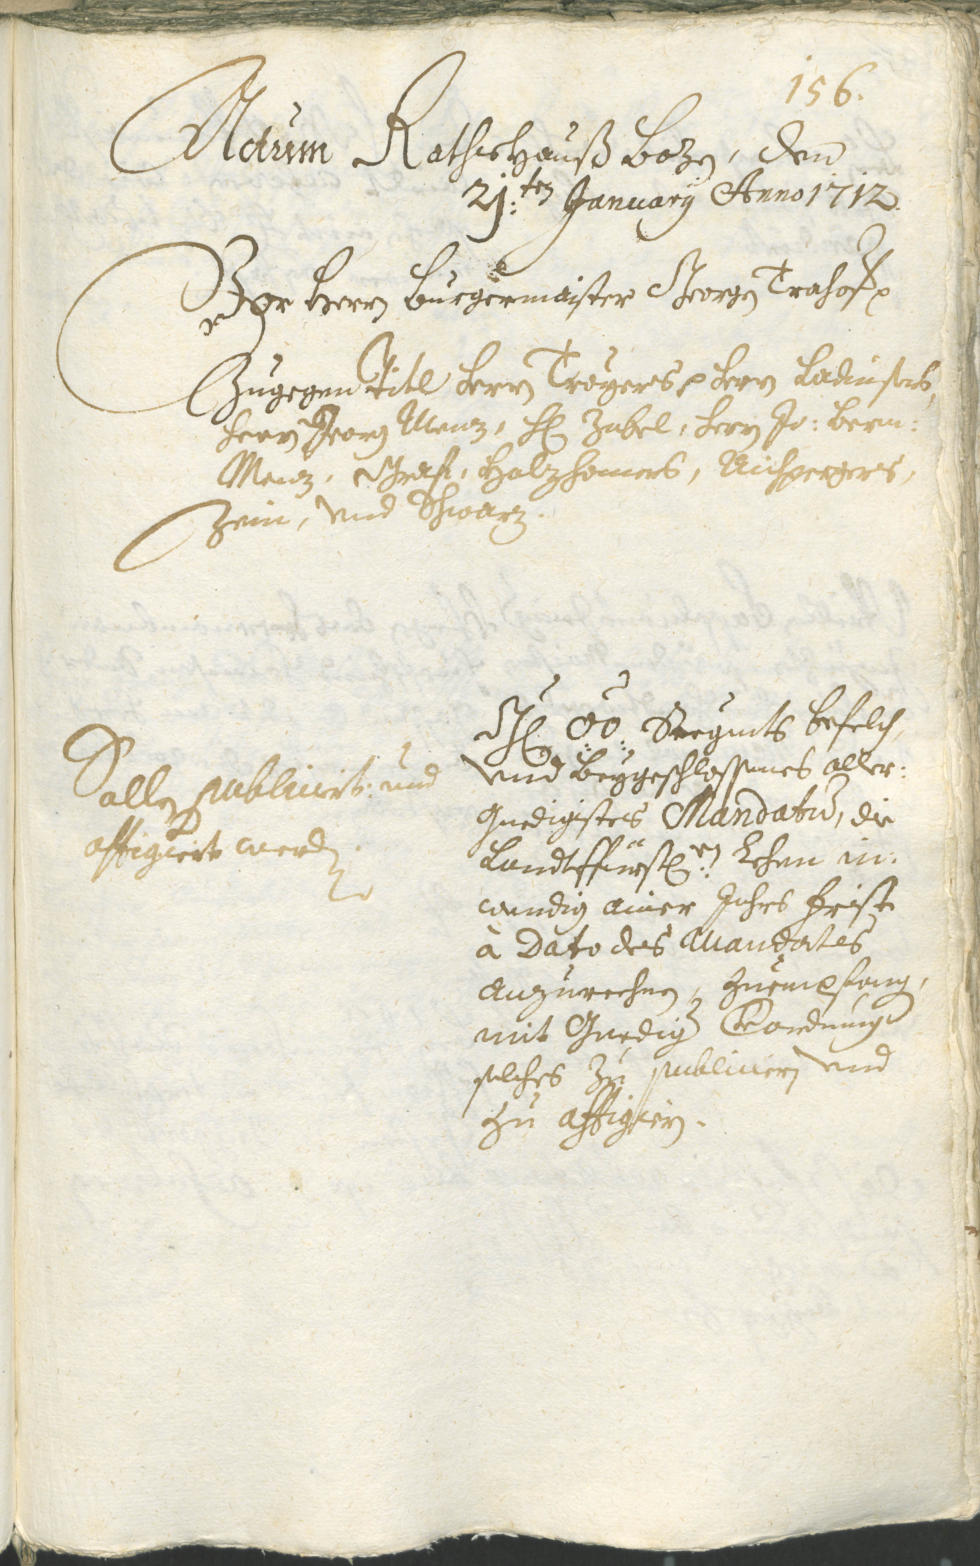 156.
Actum Rathshauß Bozn, den
21:ten January Anno 1712.
Vor Herrn Burgermaister Georgen Trahoff p
Zugegen Titl Herrn Troyers p Herrn
Herrn Georg Menz, H: Zabel, Herrn Jo: Bern:
Menz, Graff, Holzhamers, Aichpergers,
und Schwarz.
Sollen publiciert und
affigiert werden.
OÖ. Regimts befelch,
und beygeschlossenes aller:
gnedigistes Mandatum, die
Landtsfürstl:en Lehen in:
wendig ainer Jahrs frist
à Dato des Mandates
anzurechnen, zu empfang,
mit Gnedig Verordnung
solches zu publicieren und
zu affigiern.